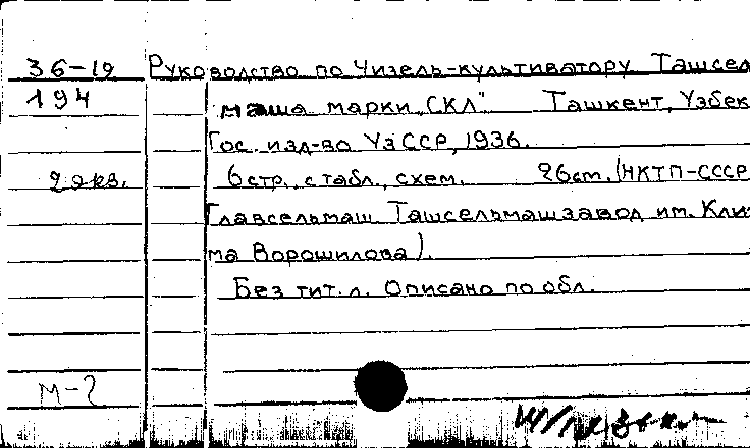 36-19 Руководство по чизель-культиватору Ташсел
194 маша марки „СКЛ" Ташкент, Узбек
Гос. изд-во УзССР, 1936.
2 экз. 6 стр., с табл., схем. 26 см. (НКТП-СССР
Главсельмаш Ташсельмашзавод им. Кли
ма Ворошилова).
Без тит. л. Описано по обл.
М-2